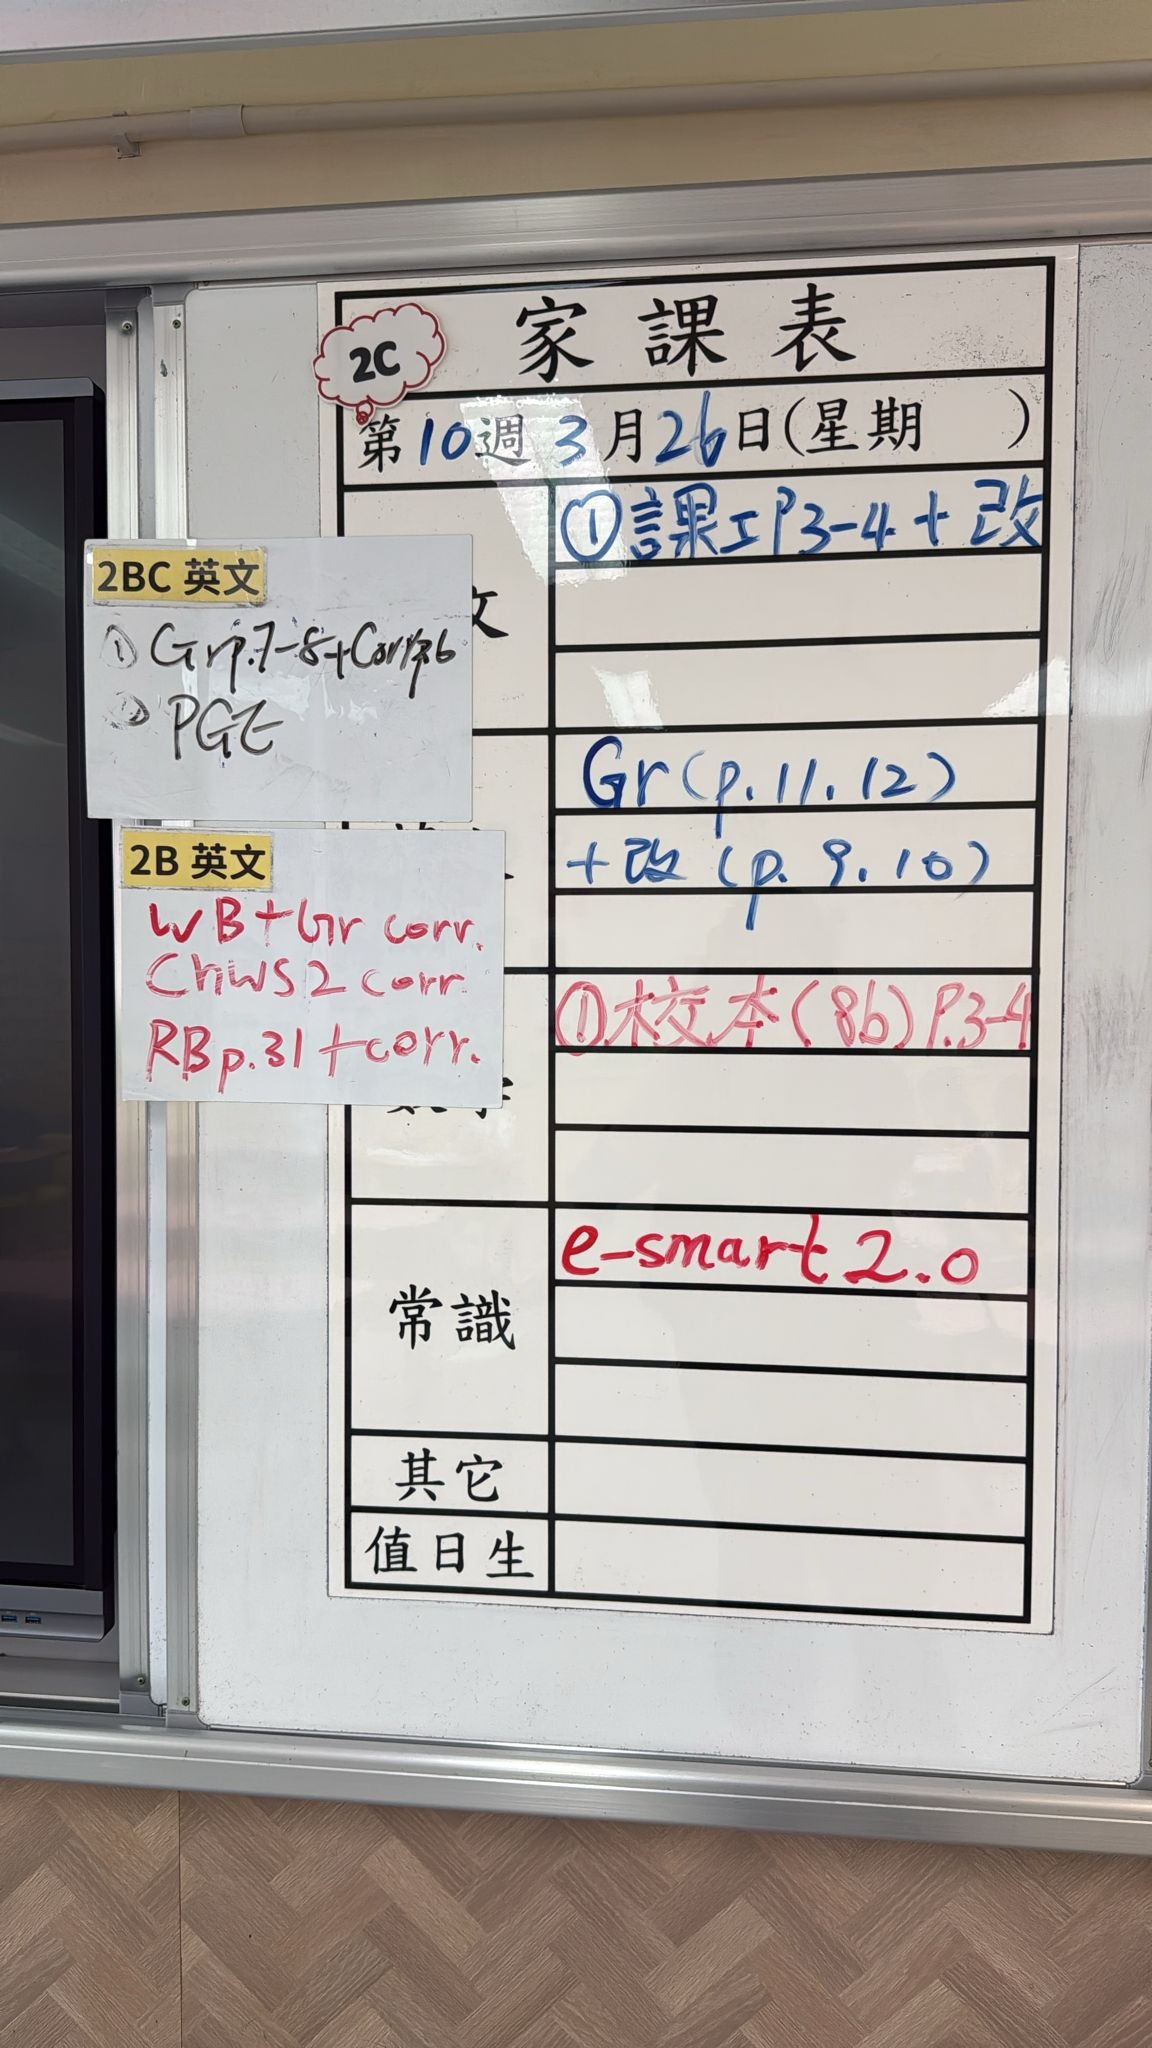 2C
家課表
第10週 3月26日(星期 )
文
①課工P3-4+改
2BC 英文
① Gr p.7-8+Corr
② PGE
Gr (p.11.12)
+改 (p. 9.10)
2B 英文
WB+Gr corr.
ChWS2 corr
RB p.31+corr.
①校本(8b) P.3-4
常識
e-smart 2.0
其它
值日生